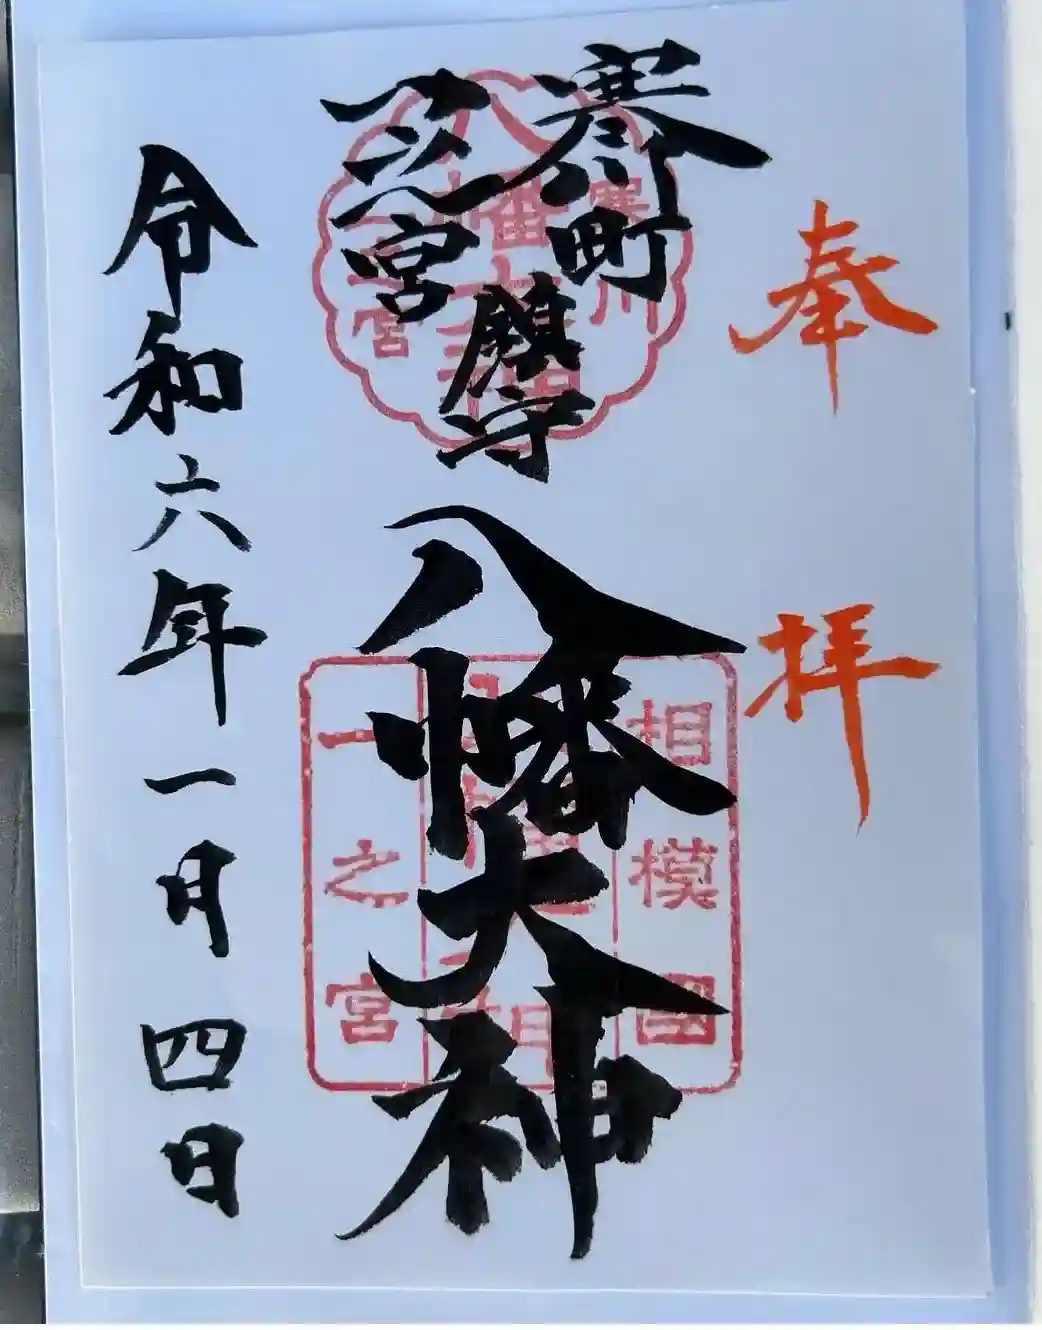 奉拝
寒川町
一之宮
鎮守
八幡大神
令和六年一月四日
寒川
一之宮
相模國
一之宮